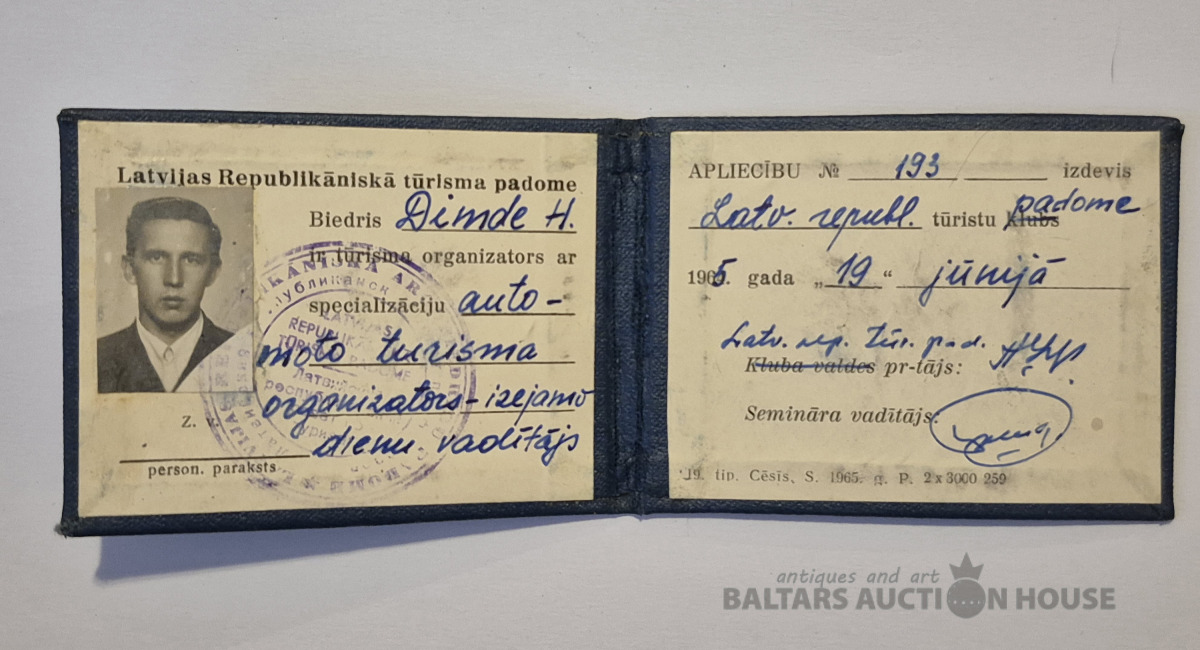 Latvijas Republikāniskā tūrisma padome
Biedris Dimde H.
ir tūrisma organizators ar
specializāciju auto-
moto turisma
organizators-izejamo
dienu vadītājs
z. v.
person. paraksts
APLIECĪBU № 193 izdevis
Latv. republ. tūristu klubs padome
1965. gada „19“ jūnijā
Latv. rep. tūr. pad.
Kluba valdes pr-tājs:
Semināra vadītājs:
19. tip. Cēsīs, S. 1965. g. P. 2x3000 259
antiques and art
BALTARS AUCTION HOUSE